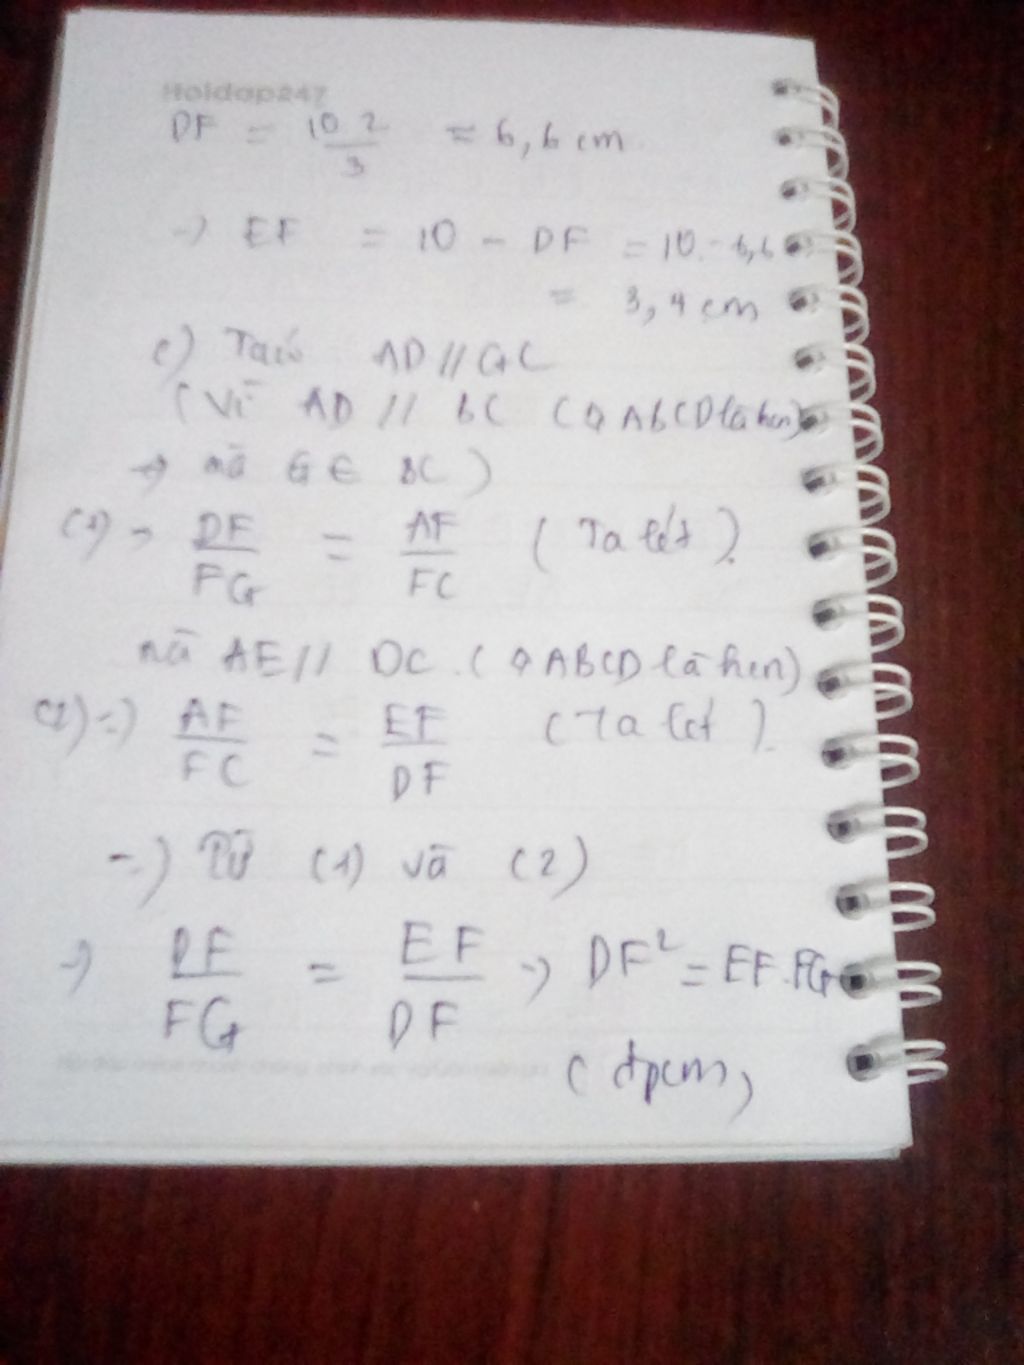 Hoidap247
DF = 10.2/3 = 6,6 cm
=) EF = 10 - DF = 10 - 6,6
= 3,4 cm
c) Ta có AD // GC
(Vì AD // BC (◊ ABCD là hcn)
=> mà G ∈ BC)
(1) => DF/FG = AF/FC (Ta lét).
mà AE // DC. (◊ ABCD là hcn)
(2) =) AF/FC = EF/DF (Ta lét).
=) Từ (1) và (2)
=) DF/FG = EF/DF =) DF² = EF.FG
(đpcm)